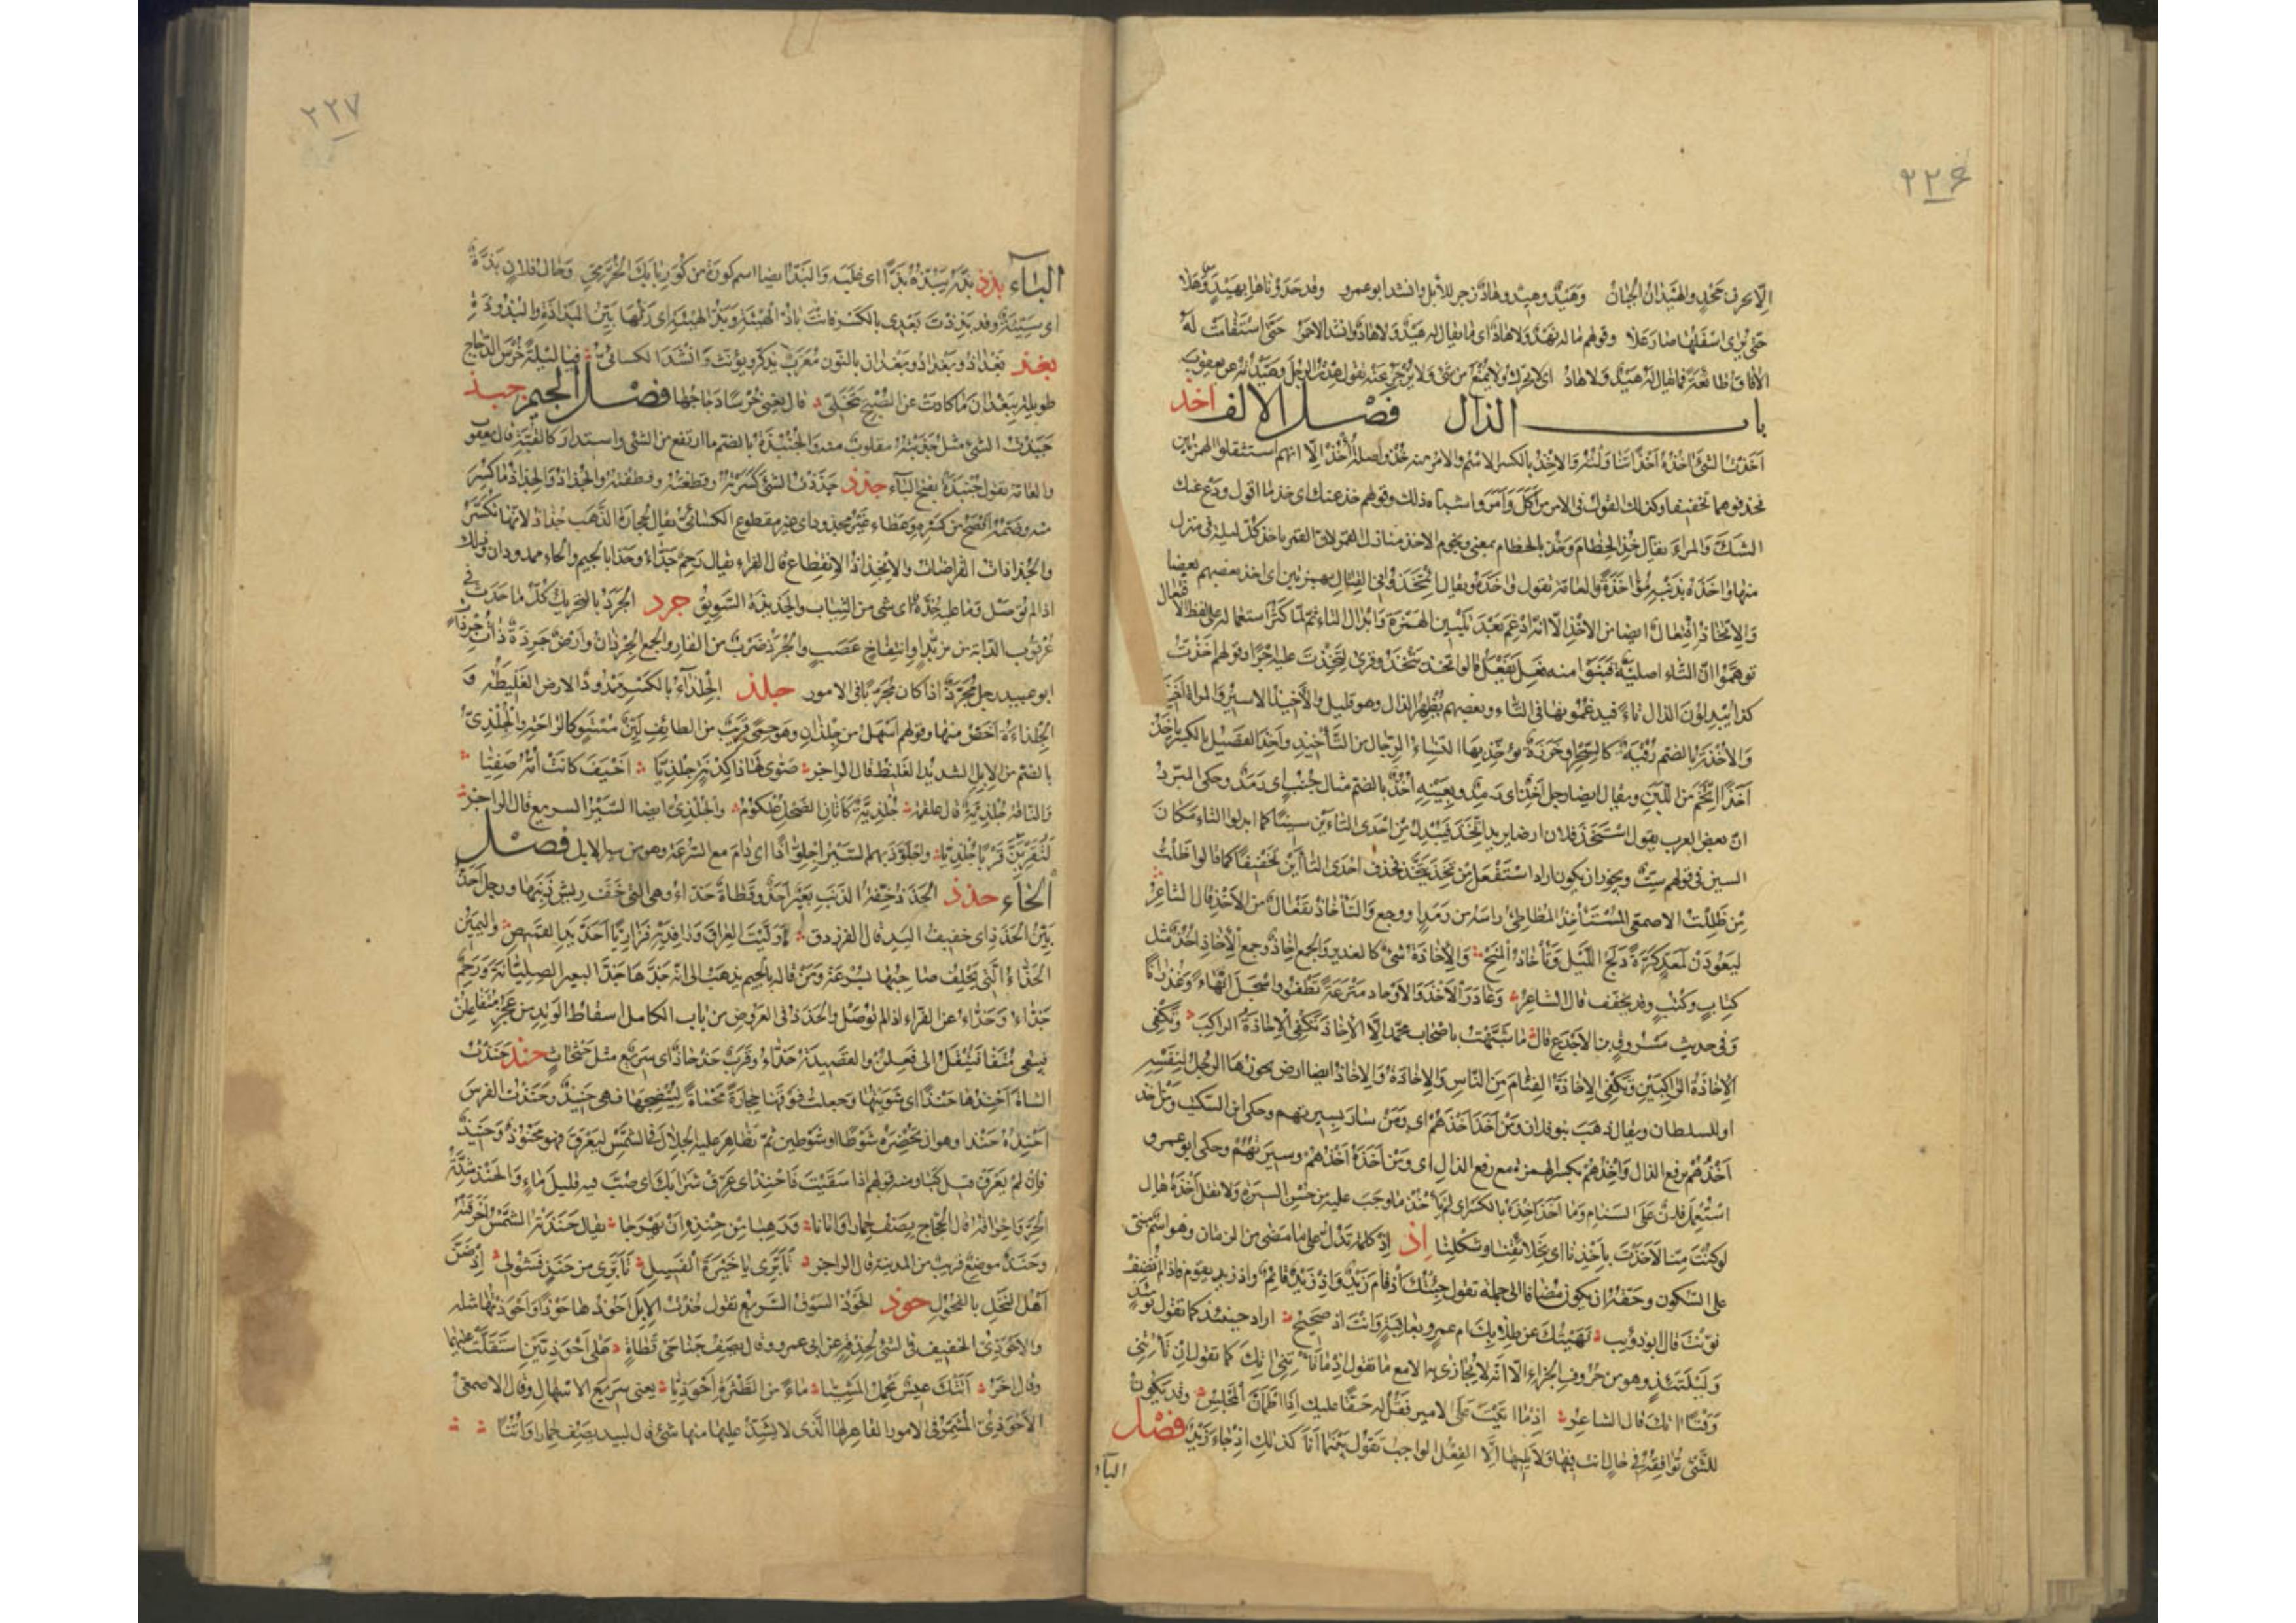 ٢٢۶
الّا بحرف جحدٍ والهَيَّذان الجبان وهَيْدٌ وهِيدٌ وهادٌ زجر للأبل وانشد ابو عمرو وقد حَدَوْناها بهَيْدٍ وهَلا
حتى يُرى اسفلها صار عَلا وقولهم ماله هَيْدٌ ولا هادٌ اى ما يقال له هَيْدٌ ولا هادٌ وانشد الاحمر حتى استقامت له
الآفاق طائعةً فما يقال له هَيْدٌ ولا هادُ اى لا يحرّك ولا يُمنع من شئ ولا يُزجر عنه تقول هِدْتُ الرجل وهيّدته عن يعقوب
باب الذال فصل الالف اخذ
اخذت الشئ آخذه اخذاً تناولته والإخذ بالكسر الاسم والامر منه خُذْ واصله أُأْخُذْ الّا انهم استثقلوا الهمزتين
فحذفوهما تخفيفا وكذلك القول فى الامر من اكل وامر واشباه ذلك وقولهم خذ عنك اى خذ ما اقول ودع عنك
الشك والمراء يقال خُذِ الخِطام وخذ بالخطام بمعنى ونجوم الاخذ منازل القمر لان القمر ياخذ كل ليلة فى منزل
منها وآخذه بذنبه مؤاخذةً والعامة تقول واخذه ويقال ائتخذوا فى القتال بهمزتين اى اخذ بعضهم بعضا
والاتخاذ افتعال ايضا من الاخذ الّا انه ادغم بعد تليين الهمزة وابدال التاء ثم لما كثر استعماله على لفظ الافتعال
توهموا انّ التاء اصلية فبنوا منه فعِل يفعَل قالوا تخِذ يتخَذ وقرئ لتخِذت عليه اجرًا وقولهم اخذت
كذا يبدلون الذال تاءً فيدغمونها فى التاء وبعضهم يُظهر الذال وهو قليل والأخيذ الاسير والمرأة اخيذة
والأخذة بالضم رُقْيةٌ كالسحر او خَرَزةٌ يؤخّذ بها النساء الرجال من التأخيذ واخِذ الفصيل بالكسر ياخذ
اخذًا اتّخم من اللبن ويقال ايضا رجل اخِذٌ اى رمِدٌ وبعينه أُخُذٌ بالضم مثال جُنُب اى رمد وحكى المبرد
انّ بعض العرب يقول استخذ فلان ارضا يريد اتّخذ فيبدل من احدى التاءين سينًا كما ابدلوا التاء مكان
السين فى قولهم ستٌّ ويجوز ان يكون اراد استفعل من تخذ يتخذ فحذف احدى التاءين تخفيفًا كما قالوا ظَلْتُ
مِن ظَلِلْت الاصمعى المستأخِذ المطاطئ راسه من رمدٍ او وجع والتأخاذ تفعال من الاخذ قال الشاعر
ليعودن لمعدٍّ كَرّةً دَلَجُ الليل وتأخاذ المِنَح والإخاذة شئ كالغدير والجمع إخاذٌ وجمع الإخاذ أُخُذٌ مثل
كتابٍ وكُتُبٍ وقد يخفف قال الشاعر وغادر الأُخْذَ والاوجاذ مترعةً تطفو واسجل انهاءً وغدرانًا
وفى حديث مسروق بن الاجدع قال ما شبّهتُ باصحاب محمد الّا الإخاذ تكفى الإخاذة الراكب وتكفى
الإخاذة الراكبين وتكفى الإخاذة الفئام من الناس والإخاذة والإخاذ ايضا ارض يحوزها الرجل لنفسه
او للسلطان ويقال ذهب بنو فلان ومن اخذ اخذهم اى ومن سار بسيرتهم وحكى ابن السكيت ومن اخذ
اخذُهم برفع الذال واِخذُهم بكسر الهمزة مع رفع الذال اى ومن اخذه اخذهم وسيرتهم وحكى ابو عمرو
استُعمل فلان على الشام وما اخَذ اِخذه بالكسر اى لم يأخذ ما وجب عليه من حسن السيرة ولا تقل اخذه قال
لو كنت منّا لأخذت باِخذنا اى بخلائقنا وشكلنا اذ اذ كلمة تدل على ما مضى من الزمان وهو اسم مبنى
على السكون وحقه ان يكون مضافا الى جملة تقول جئتك اذ قام زيد واذ زيد قائم واذ زيد يقوم فاذا لم تُضف
نوّنت قال ابو ذؤيب نهيتك عن طلابك ام عمرو بعاقبةٍ وانت اذٍ صحيح اراد حينئذ كما تقول يومئذ
وليلتئذ وهو من حروف الجزاء الّا انه لا يجازى به الا مع ما تقول اذما تأتنى آتك كما تقول ان تأتنى
وقتًا آتك قال الشاعر اذما اتيت على الامير فقل له حقًا عليك اذا اطمأن المجلس وقد يكون
للشئ توافقه فى حال انت فيها ولا يليها الّا الفعل الواجب تقول بينما انا كذلك اذ جاء زيد فصل
الباء
٢٢٧
الباء بذذ بذّه يبذّه بذًّا اى غلبه والبذّ ايضا اسم كورة من كور بابك الخرّمى وحال فلان بذّةٌ
اى سيئة وقد بذذت بعدى بالكسر فانت باذّ الهيئة وبذّ الهيئة اى رثّها بيّن البذاذة والبذوذة
بغذ بغداذ وبغداد وبغدان بالنون معرّب يذكر ويؤنث وانشد الكسائى فيا ليلةً خُرْسَ الدجاج
طويلةً ببغدان ما كادت عن الصبح تنجلى قال يعنى خُرسًا دجاجها فصل الجيم جبذ
جبذت الشئ مثل جذبته مقلوب منه والجُنبذة بالضم ما ارتفع من الشئ واستدار كالقبة قال يعقوب
والعامة تقول جُنبَذة بفتح الباء جذذ جذذت الشئ كسرته وقطعته والجُذاذ والجِذاذ ما كُسر
منه وضمّه افصح من كسره وعطاء غير مجذوذ اى غير مقطوع الكسائى يقال لحجارة الذهب جُذاذ لانها تُكسّر
والجذاذات القراضات والانجذاذ الانقطاع قال الفراء يقال رحم جذّاء وحذّاء بالجيم والحاء ممدودان وذلك
اذا لم توصل وما عليه جُذّة اى شئ من الثياب والجذيذة السويق جرذ الجَرَذ بالتحريك كل ما حدث فى
عرقوب الدابة من تزيّد او انتفاخ عصب والجُرَذ ضرب من الفار والجمع الجِرذان وارض جَرِذة ذات جرذان
ابو عبيد رجل مُجرَّذٌ اذا كان مجرّبًا فى الامور جلذ الجِلذاء بالكسر ممدود الارض الغليظة و
الجِلذاءة اخصّ منها وقولهم اسهل من جِلذان وهو حِمًى قريب من الطائف ليّنٌ مستوٍ كالراحة والجُلذىّ
بالضم من الابل الشديد الغليظ قال الراجز صَوّى لها ذا كِدنة جُلذيّا اخيف كانت امه صفيّا
والناقة جُلذيّة قال علقمة جُلذيّة كأتان الضحل عُلكوم والجُلذىّ ايضا السير السريع قال الراجز
لتقربِنّ قربًا جلذيّا واجلوّذ بهم السير اجلوّاذًا اى دام مع السرعة وهو من سير الابل فصل
الحاء حذذ الحذذ خفة الذنب بعير احذّ وقطاة حذّاء وهى التى خفّ ريش ذنبها ورجل احذّ
بيّن الحذذ اى خفيف اليد قال الفرزدق أوليت العراق ورافديه فزاريًّا احذّ يد القميص واليمين
الحذّاء التى يحلف صاحبها بسرعة ومن قاله بالجيم يذهب الى انه جذّها جذّ البعير الصليانة ورحم
حذّاء وجذّاء عن الفراء اذا لم توصل والحذذ فى العروض من باب الكامل اسقاط الوتد من عجز متفاعلن
فيبقى متفا فيُنقل الى فعِلن والقصيدة حذّاء وقرب حذحاذ اى سريع مثل حثحاث حنذ حنذت
الشاة احنذها حنذًا اى شويتها وجعلت فوقها حجارة محماة لتُنضجها فهى حنيذ وحنذت الفرس
احنذه حنذا وهو ان تحضره شوطًا او شوطين ثم تظاهر عليه الجلال فى الشمس ليعرق فهو محنوذ وحنيذ
فان لم يعرق قيل كبا ومنه قولهم اذا سقيت فاحنِذ اى عرّق شرابك اى صُبّ فيه قليل ماءٍ والحنذ شدة
الحر واحراقه قال العجاج يصف حمارا واتانا ورهبا من حنذه ان يهرجا يقال حنذته الشمس احرقته
وحَنَذٌ موضع قريب من المدينة قال الراجز تأبّرى يا خَيْرةَ الفسيل تأبّرى من حَنَذٍ فشولى اذ ضنّ
اهل النخل بالفحول حوذ الحوذ السوق السريع تقول حُذت الابل احوذها حَوذًا واحوذتها مثله
والاحوذىّ الخفيف فى الشئ لحِذقه عن ابى عمرو وقال يصف جناحى قطاة على احوذيّين استقلّت عليهما
وقال آخر اتتك عيسٌ تحمل المشيّا ماءً من الطثرة احوذيّا يعنى سريع الاسهال وقال الاصمعى
الاحوذىّ المشمّر فى الامور القاهر لها الذى لا يشذّ عليه منها شئ قال لبيد يصف حمارا واتنًا